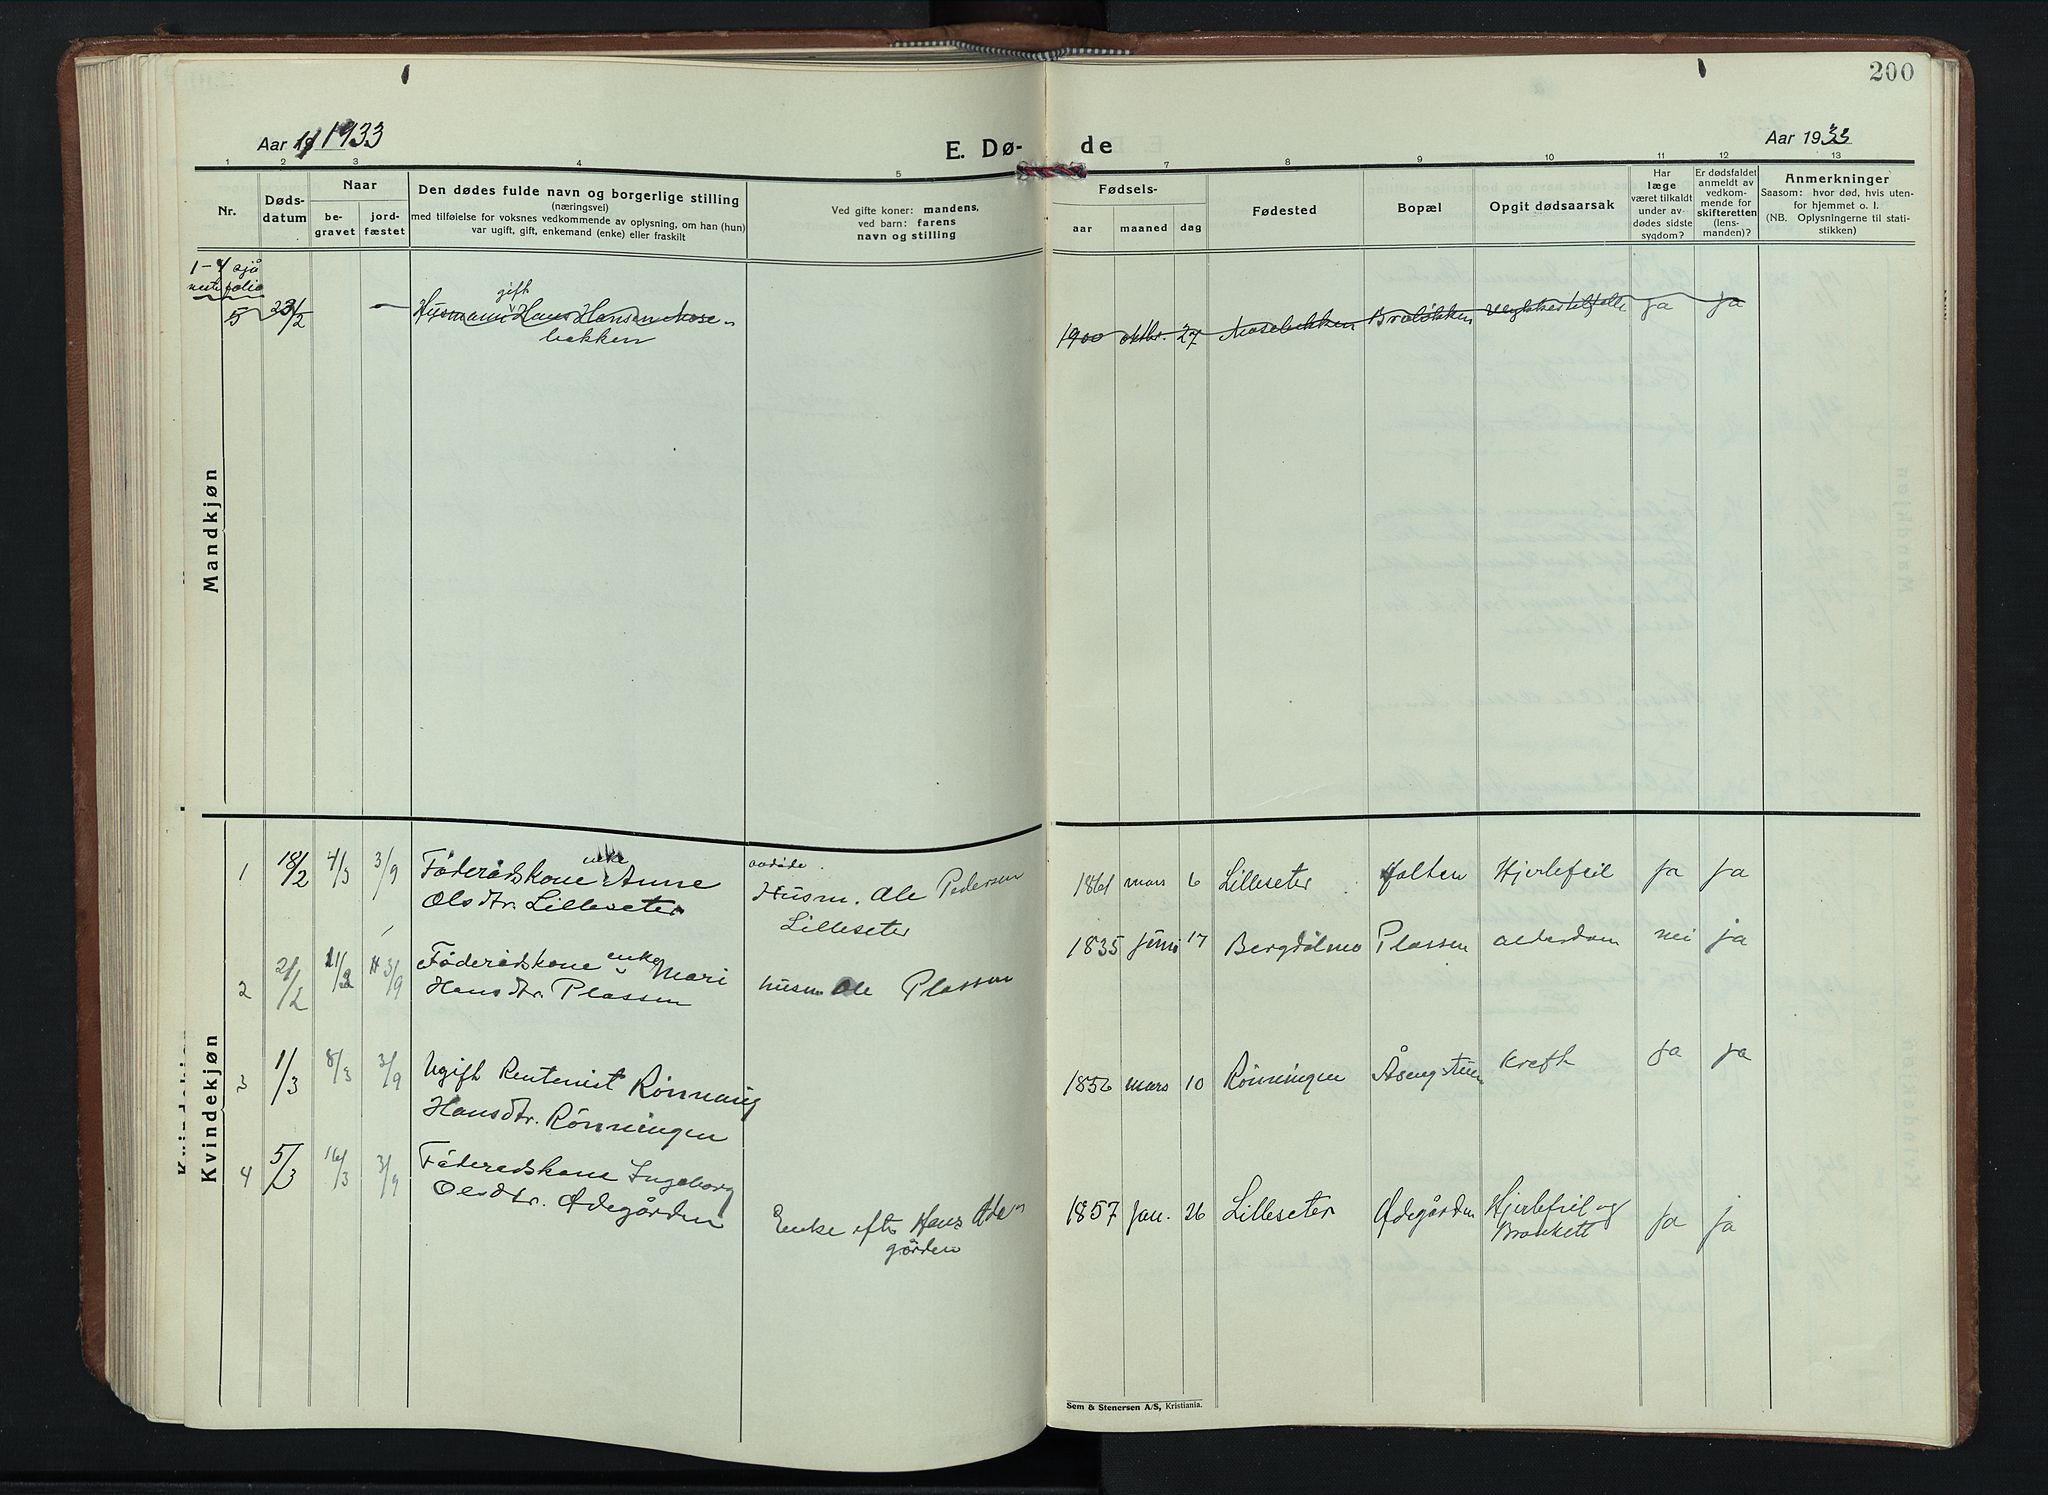 200
Aar 1933
E. Dø-
de
Aar 1933
1 2 3 4 5 7 8 9 10 11 12 13
Nr.
Døds-
datum
Naar
be-
gravet
jord-
fæstet
Den dødes fulde navn og borgerlige stilling
(næringsvei)
med tilføielse for voksnes vedkommende av oplysning, om han (hun)
var ugift, gift, enkemand (enke) eller fraskilt
Ved gifte koner: mandens,
ved barn: farens
navn og stilling
Fødsels-
aar maaned dag
Fødested
Bopæl
Opgit dødsaarsak
Har
læge
været tilkaldt
under av-
dødes sidste
sygdom?
Er dødsfaldet
anmeldt av
vedkom-
mende for
skifteretten
(lens-
manden)?
Anmerkninger
Saasom: hvor død, hvis uten-
for hjemmet o. l.
(NB. Oplysningerne til stati-
stikken)
1-4 sjå
neste folio
gift
5 23/2 Husmann Hans Hansen Mose-
bakken
1900 oktbr. 27 Mosebakken ja ja
Mandkjøn
Kvindekjøn
enke
avdøde
1 18/2 4/3 3/9 Føderådskone Anne
Olsdtr. Lilleseter
Husm. Ole Pedersen
Lilleseter
1861 mars 6 Lilleseter Holten Hjertefeil ja ja
enke
2 21/2 11/3 3/9 Føderådskone Mari
Hansdtr. Plassen
Husm Ole Plassen
1835 juni 17 Bergdølmo Plassen alderdom nei ja
3 1/3 8/3 3/9 Ugift Rentenist Rønnaug
Hansdtr. Rønningen
1856 mars 10 Rønningen Åsengstuen kreft ja ja
4 5/3 16/3 3/9 Føderådskone Ingeborg
Olsdtr. Ødegården
Enke efter Hans Øde-
gården
1857 jan. 26 Lilleseter Ødegården Hjertefeil og
Bronkitt
ja ja
Sem & Stenersen A/S, Kristiania.